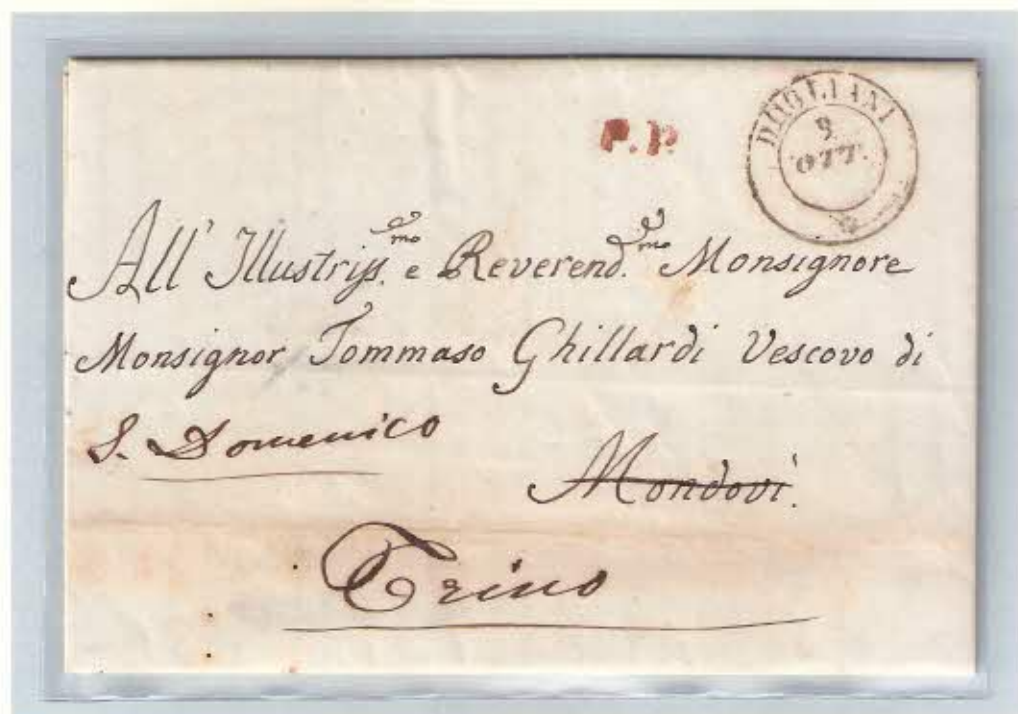 P.P.
DOGLIANI
9
OTT.
All' Illustriss.mo e Reverend.mo Monsignore
Monsignor Tommaso Ghillardi Vescovo di
S. Domenico
Mondovì.
Trino